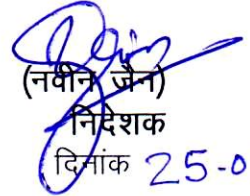 (नवीन जैन)
निदेशक
दिनांक 25-0